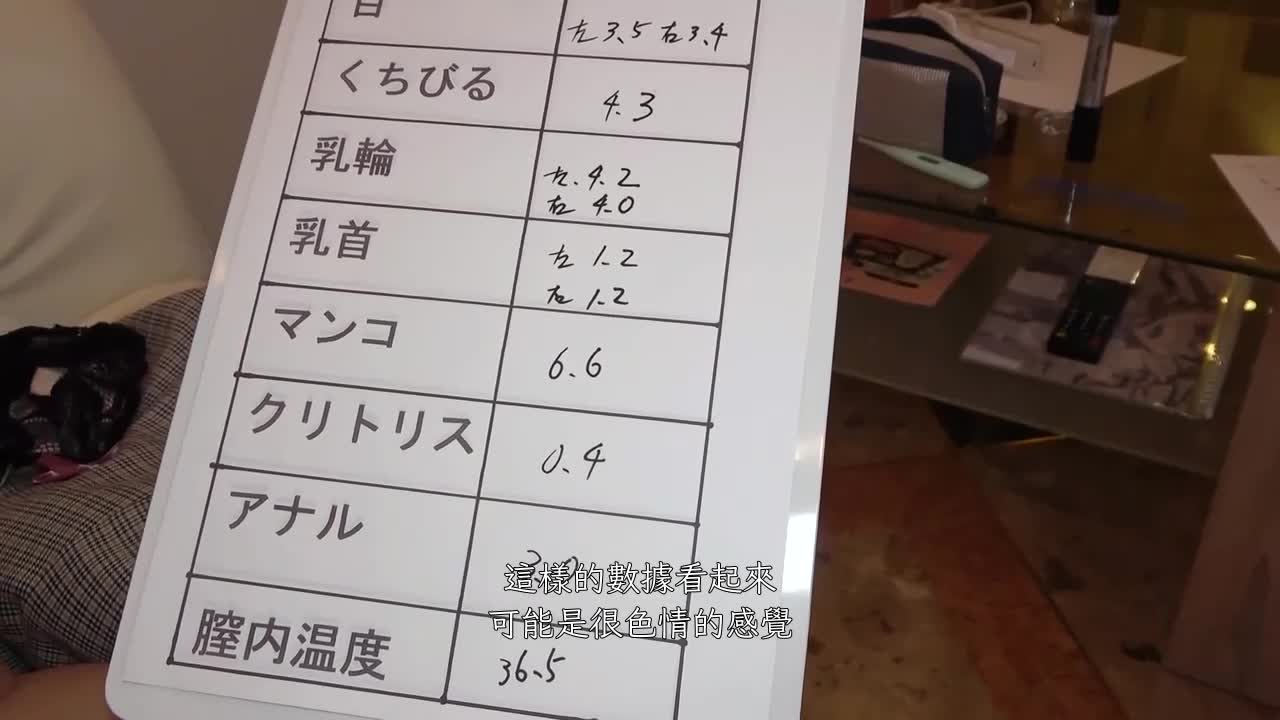 左3.5 右3.4
くちびる
4.3
乳輪
左.4.2
右 4.0
乳首
左 1.2
右 1.2
マンコ
6.6
クリトリス
0.4
アナル
膣内温度
36.5
這樣的數據看起來
可能是很色情的感覺